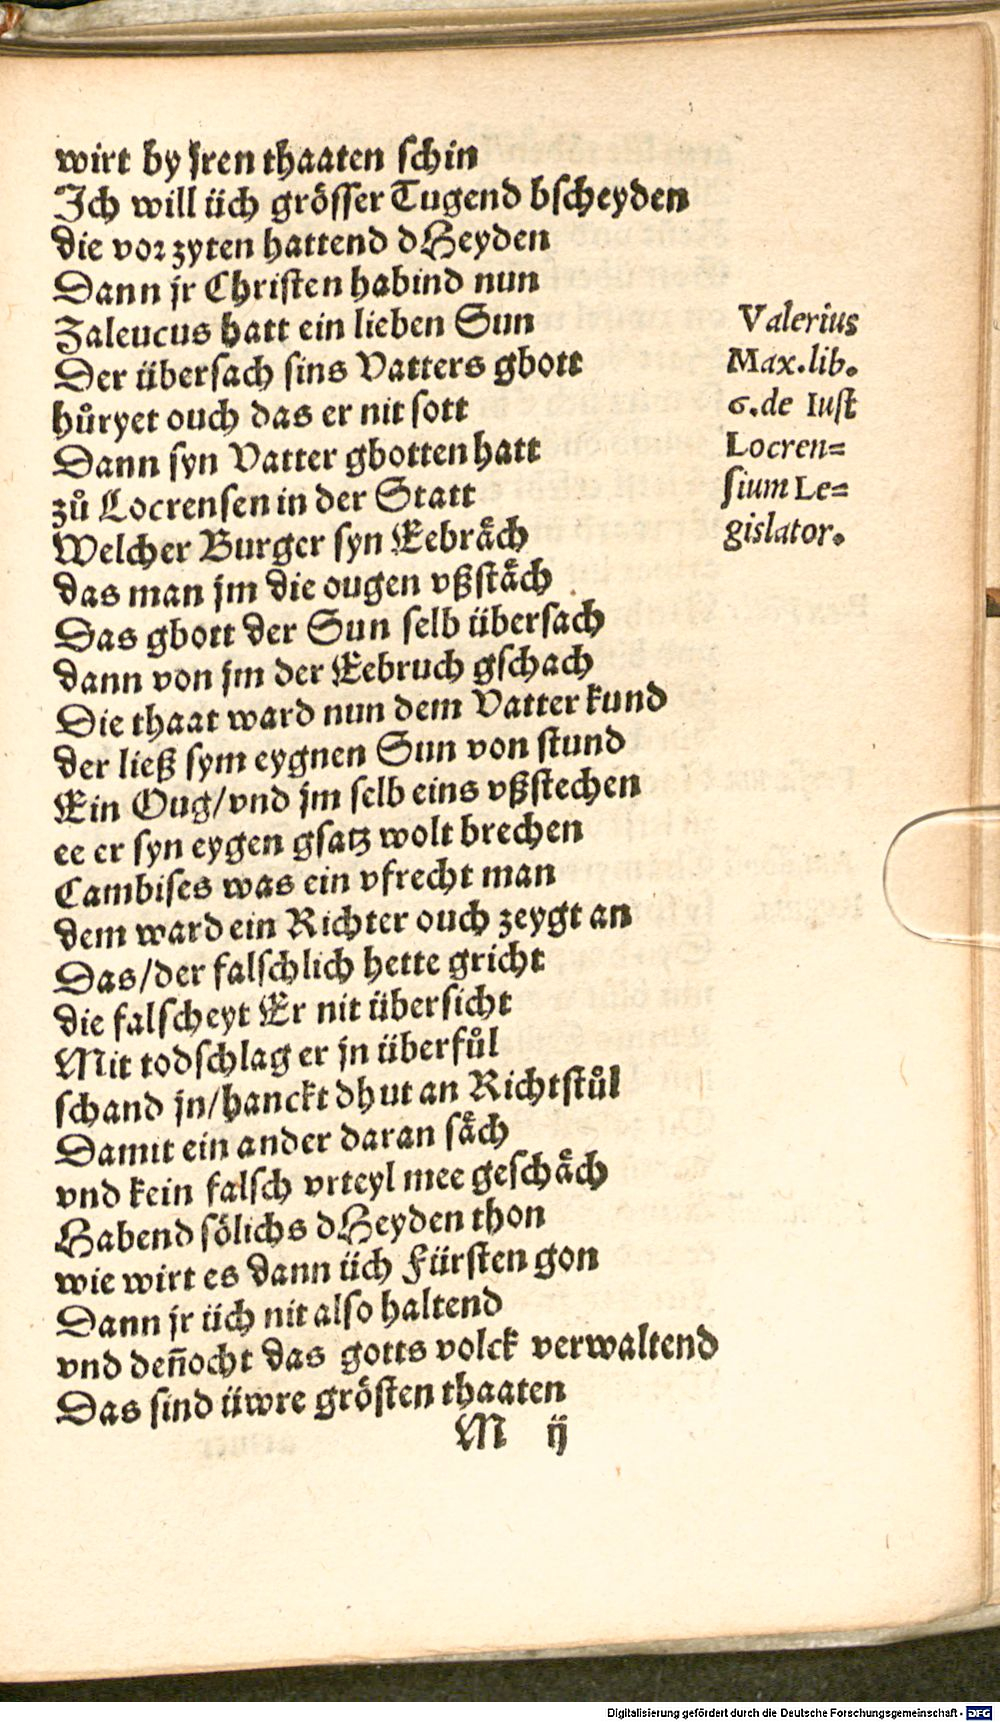 wirt by jren thaaten schin
Ich will üch grösser Tugend bscheyden
die vor zyten hattend dHeyden
Dann jr Christen habind nun
Zaleucus hatt ein lieben Sun
Der übersach sins Vatters gbott
hůryet ouch das er nit sott
Dann syn Vatter gbotten hatt
zů Locrensen in der Statt
Welcher Burger syn Eebräch
das man jm die ougen vßstäch
Das gbott der Sun selb übersach
dann von jm der Eebruch gschach
Die thaat ward nun dem Vatter kund
der ließ sym eygnen Sun von stund
Ein Oug/vnd jm selb eins vßstechen
ee er syn eygen gsatz wolt brechen
Cambises was ein vfrecht man
dem ward ein Richter ouch zeygt an
Das/der falschlich hette gricht
die falscheyt Er nit übersicht
Mit todschlag er jn überfůl
schand jn/hanckt dhut an Richtstůl
Damit ein ander daran säch
vnd kein falsch vrteyl mee geschäch
Habend sölichs dHeyden thon
wie wirt es dann üch Fürsten gon
Dann jr üch nit also haltend
vnd deñocht das gotts volck verwaltend
Das sind üwre grösten thaaten
M ij
Valerius
Max.lib.
6.de Iust
Locren=
sium Le=
gislator.
Digitalisierung gefördert durch die Deutsche Forschungsgemeinschaft - DFG